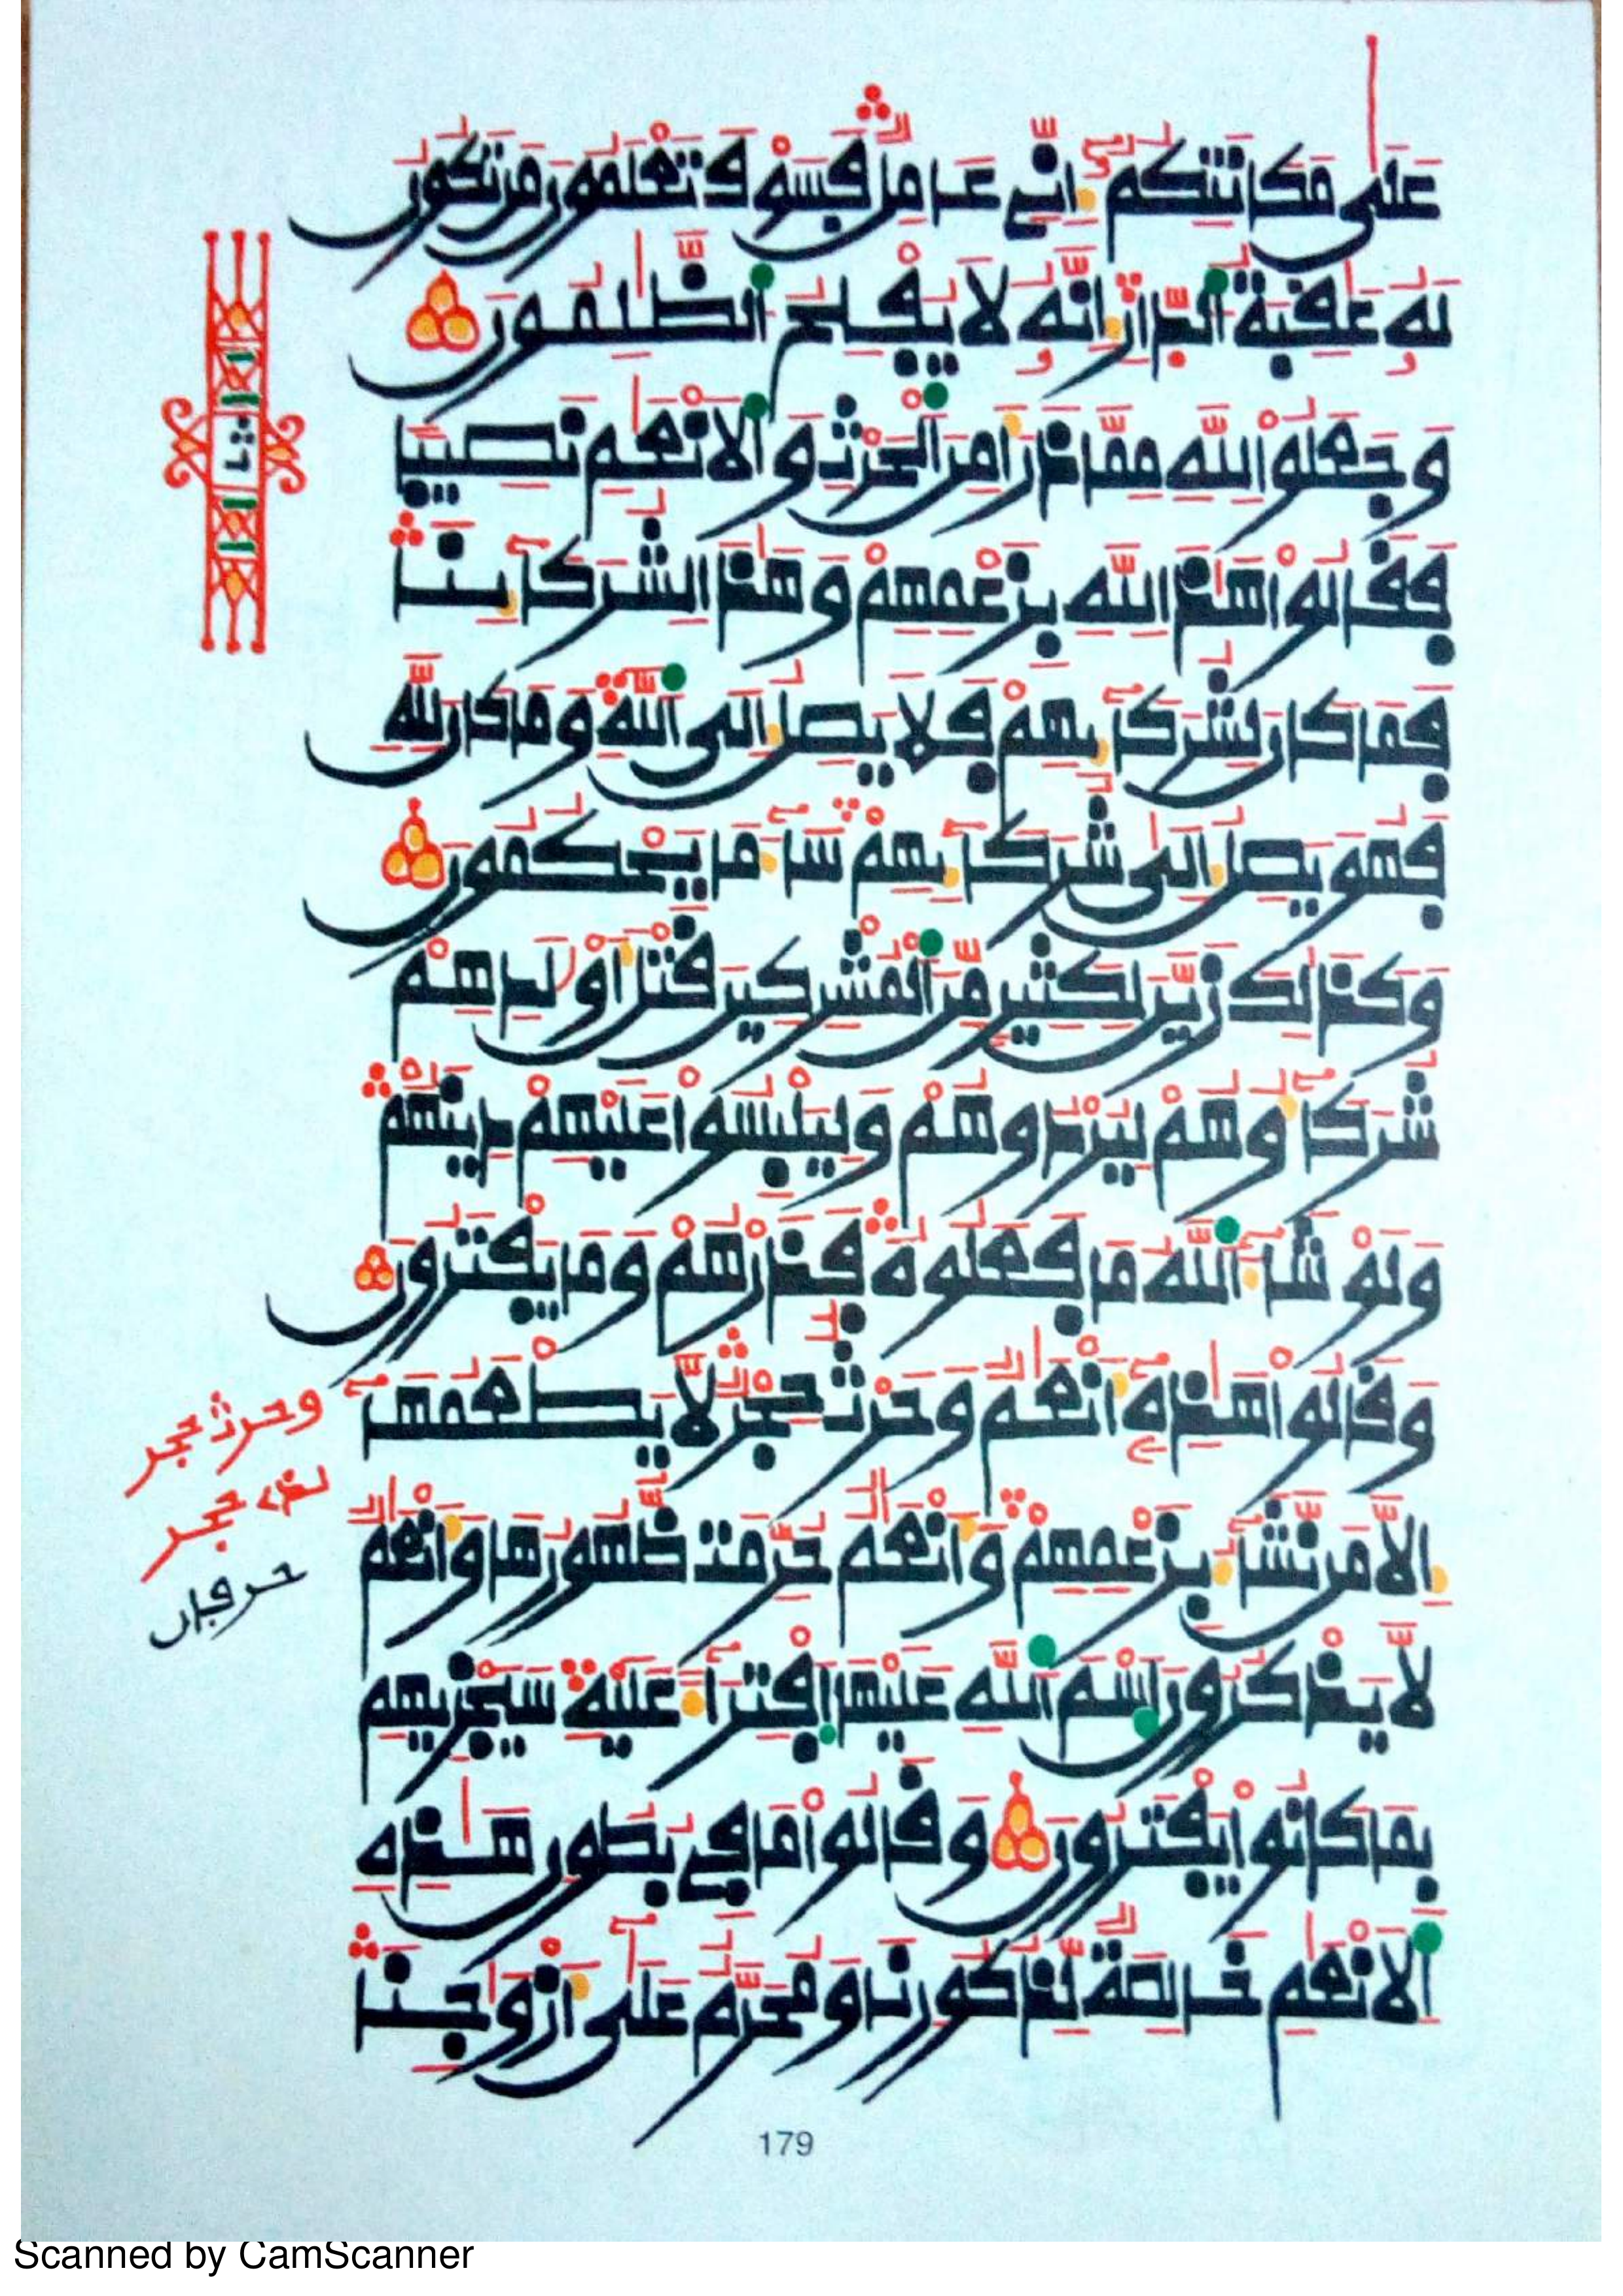 عَلَىٰ مَكَانَتِكُمُۥٓ إِنِّے عَامِلٞ فَسَوْفَ تَعْلَمُونَ مَن تَكُونُ
لَهُۥ عَٰقِبَةُ اُ۬لدِّارِۖ إِنَّهُۥ لَا يُفْلِحُ اُ۬لظَّٰلِمُونَ
وَجَعَلُواْ لِلهِ مِمَّا ذَرَأَ مِنَ اَ۬لْحَرْثِ وَالَانْعَٰمِ نَصِيباٗ
فَقَالُواْ هَٰذَا لِلهِ بِزَعْمِهِمْ وَهَٰذَا لِشُرَكَآئِنَاۖ
فَمَا كَانَ لِشُرَكَآئِهِمْ فَلَا يَصِلُ إِلَى اَ۬للَّهِۖ وَمَا كَانَ لِلهِ
فَهُوَ يَصِلُ إِلَىٰ شُرَكَآئِهِمْۖ سَآءَ مَا يَحْكُمُونَ
وَكَذَٰلِكَ زَيَّنَ لِكَثِيرٖ مِّنَ اَ۬لْمُشْرِكِينَ قَتْلَ أَوْلَٰدِهِمْ
شُرَكَآؤُهُمْ لِيُرْدُوهُمْ وَلِيَلْبِسُواْ عَلَيْهِمْ دِينَهُمْۖ
وَلَوْ شَآءَ اَ۬للَّهُ مَا فَعَلُوهُۖ فَذَرْهُمْ وَمَا يَفْتَرُونَ
وَقَالُواْ هَٰذِهِۦٓ أَنْعَٰمٞ وَحَرْثٌ حِجْرٞۖ لَّا يَطْعَمُهَآ
وحرث حجر
لذے حجر
إِلَّا مَن نَّشَآءُ بِزَعْمِهِمْۖ وَأَنْعَٰمٌ حُرِّمَتْ ظُهُورُهَا وَأَنْعَٰمٞ
لَّا يَذْكُرُونَ اَ۪سْمَ اَ۬للَّهِ عَلَيْهَا اَ۪فْتِرَآءً عَلَيْهِۖ سَيَجْزِيهِم
بِمَا كَانُواْ يَفْتَرُونَ وَقَالُواْ مَا فِے بُطُونِ هَٰذِهِ
اِ۬لَانْعَٰمِ خَالِصَةٞ لِّذُكُورِنَا وَمُحَرَّمٌ عَلَىٰٓ أَزْوَٰجِنَاۖ
179
Scanned by CamScanner